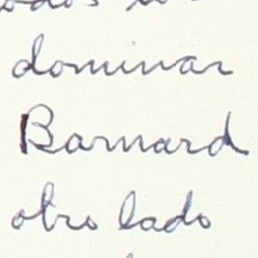 dominar
Barnard
otro lado